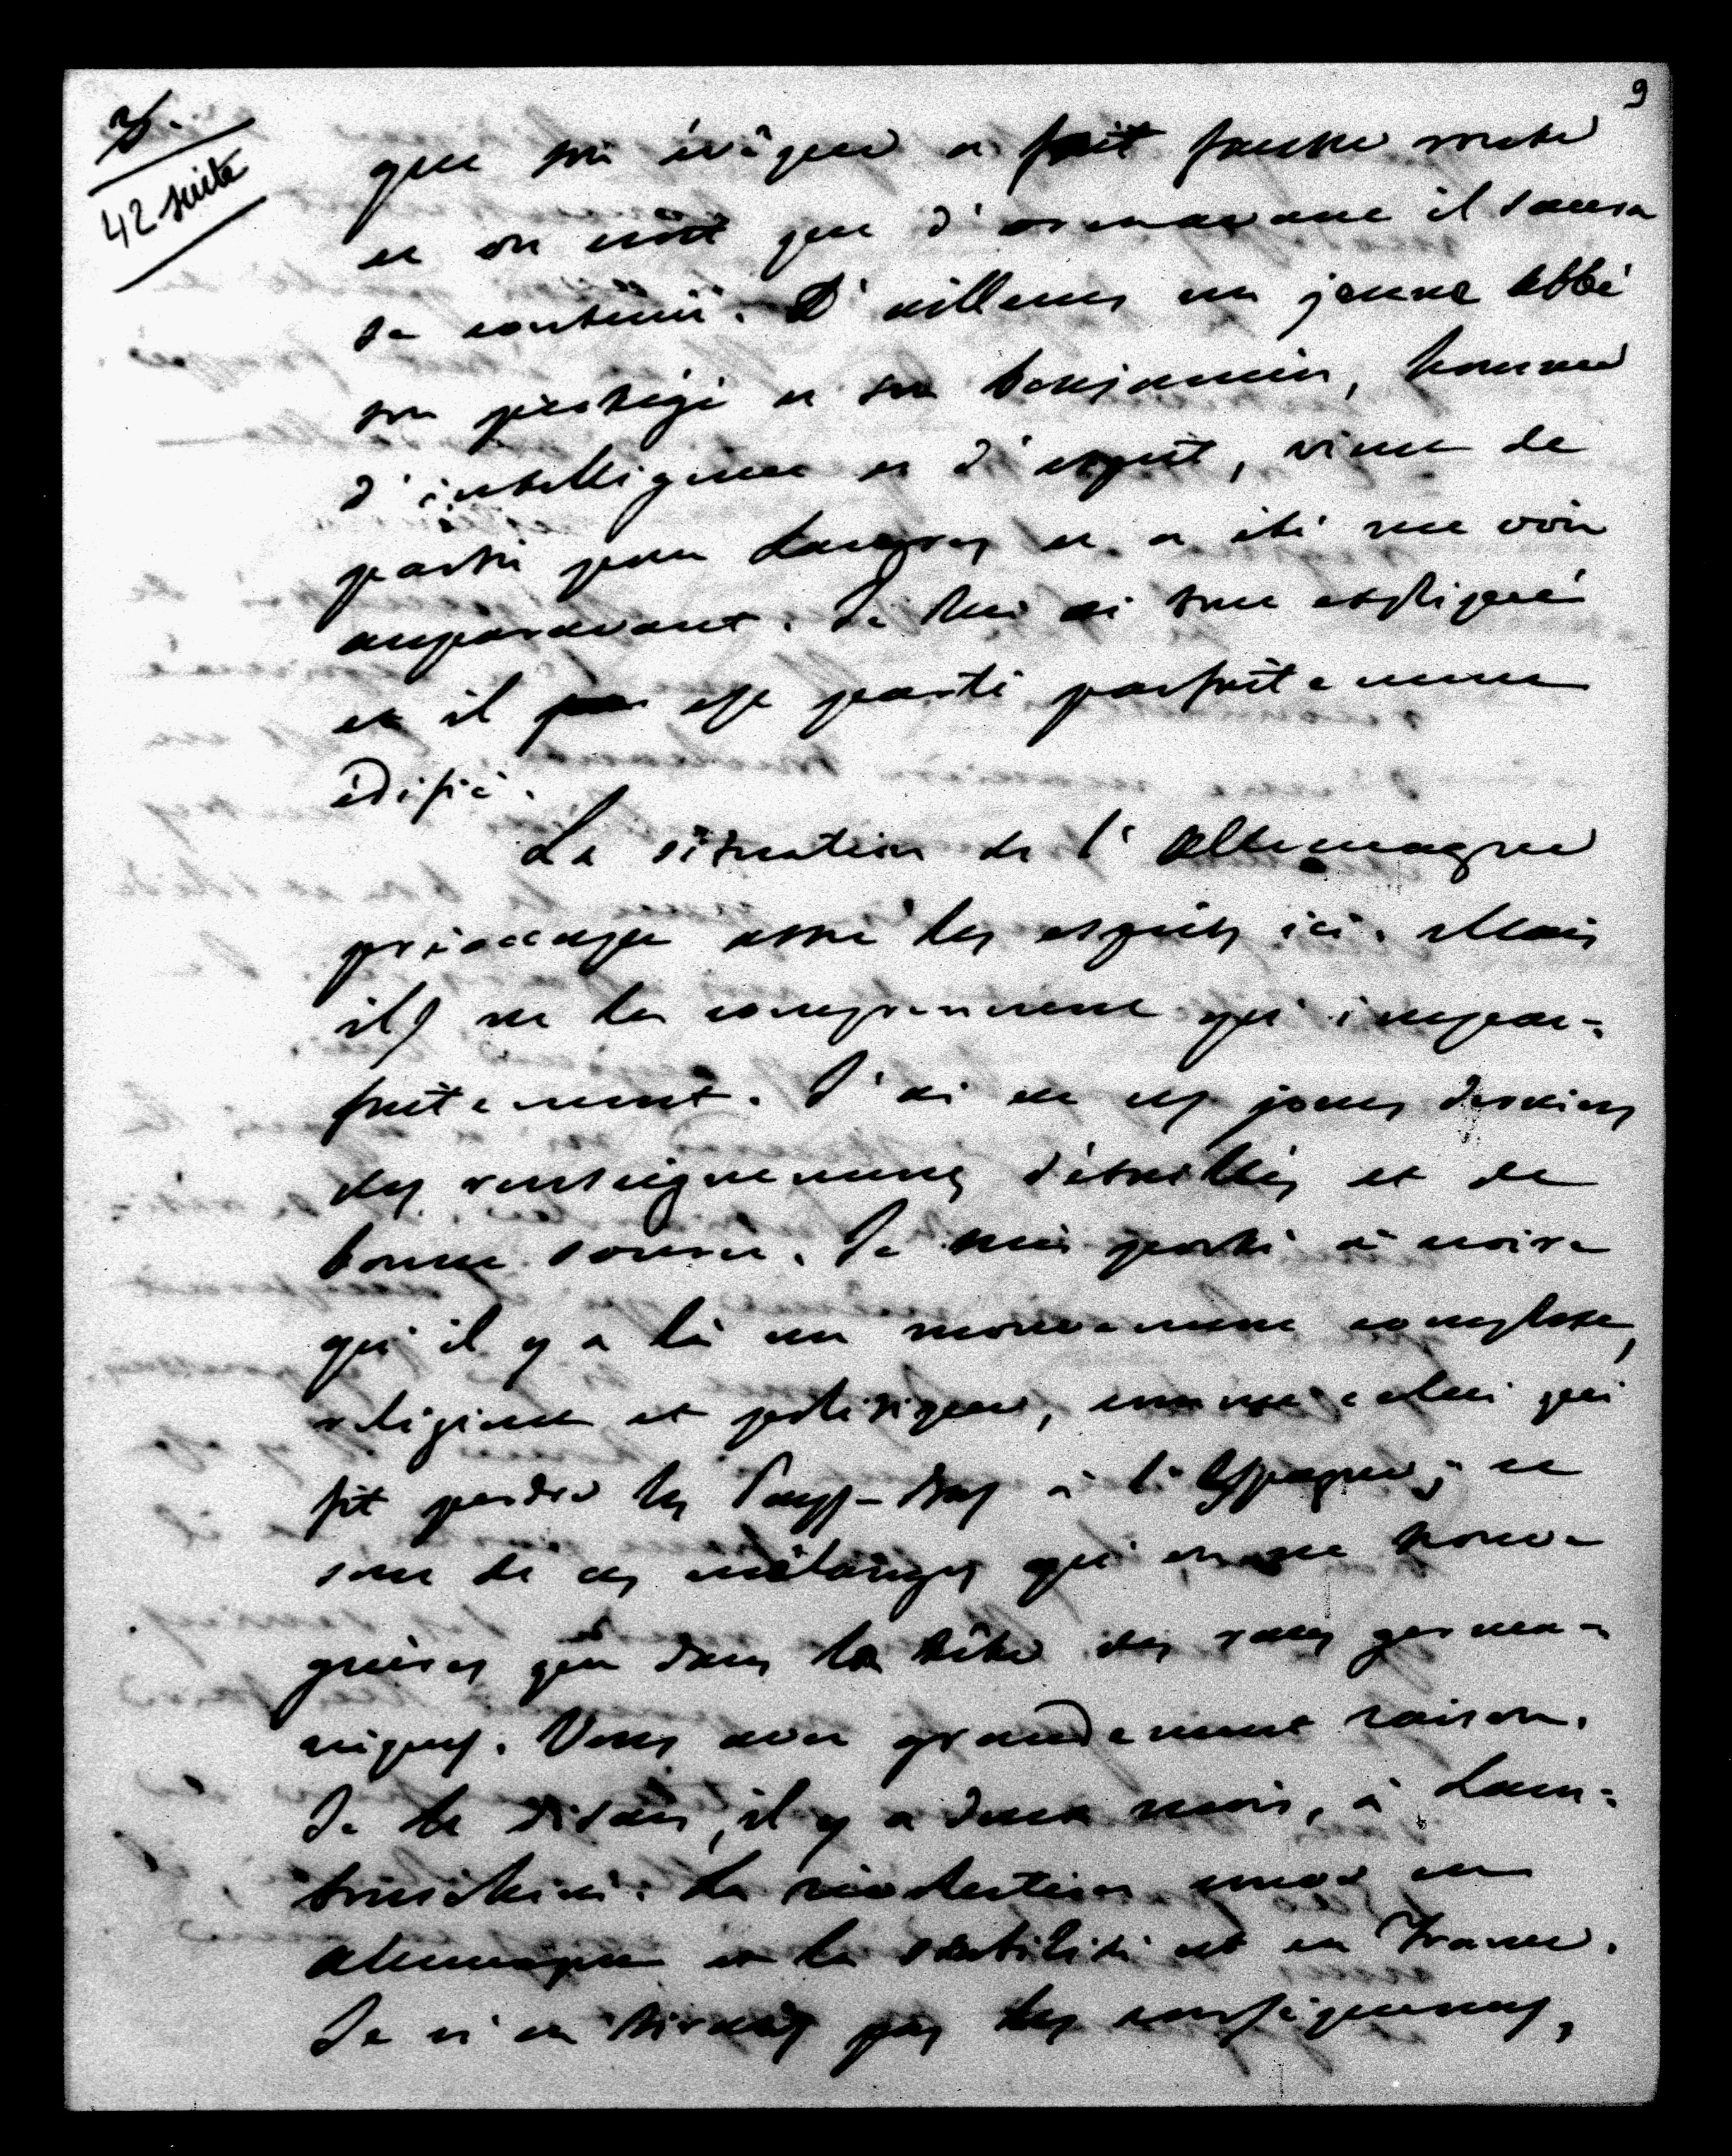 9
3.
42 suite
que son évêque a fait fausse route
et on croit que d'orénavant il saura
se contenir. D'ailleurs un jeune Abbé
son protégé et son benjamin, homme
d'intelligence et d'esprit, vient de
partir pour Langres et a été me voir
auparavant. Je lui ai tout expliqué
et il est parti parfaitement
édifié.
La situation de l'Allemagne
préoccupe assez les esprits ici. Mais
ils ne la comprennent qu'impar-
faitement. J'ai eu ces jours derniers
des renseignements détaillés et de
bonne source. Je suis porté à croire
qu'il y a là un mouvement complexe,
religieux et politique, comme celui qui
fit perdre les Pays-Bas à l'Espagne; ce
sont de ces mélanges qu'on ne trouve
guères que dans la tête des races germa-
niques. Vous avez grandement raison.
Je le disais, il y a deux mois, à Lam-
bruschini. La révolution est en
Allemagne et la stabilité est en France.
Je n'en tirerais pas les conséquences,